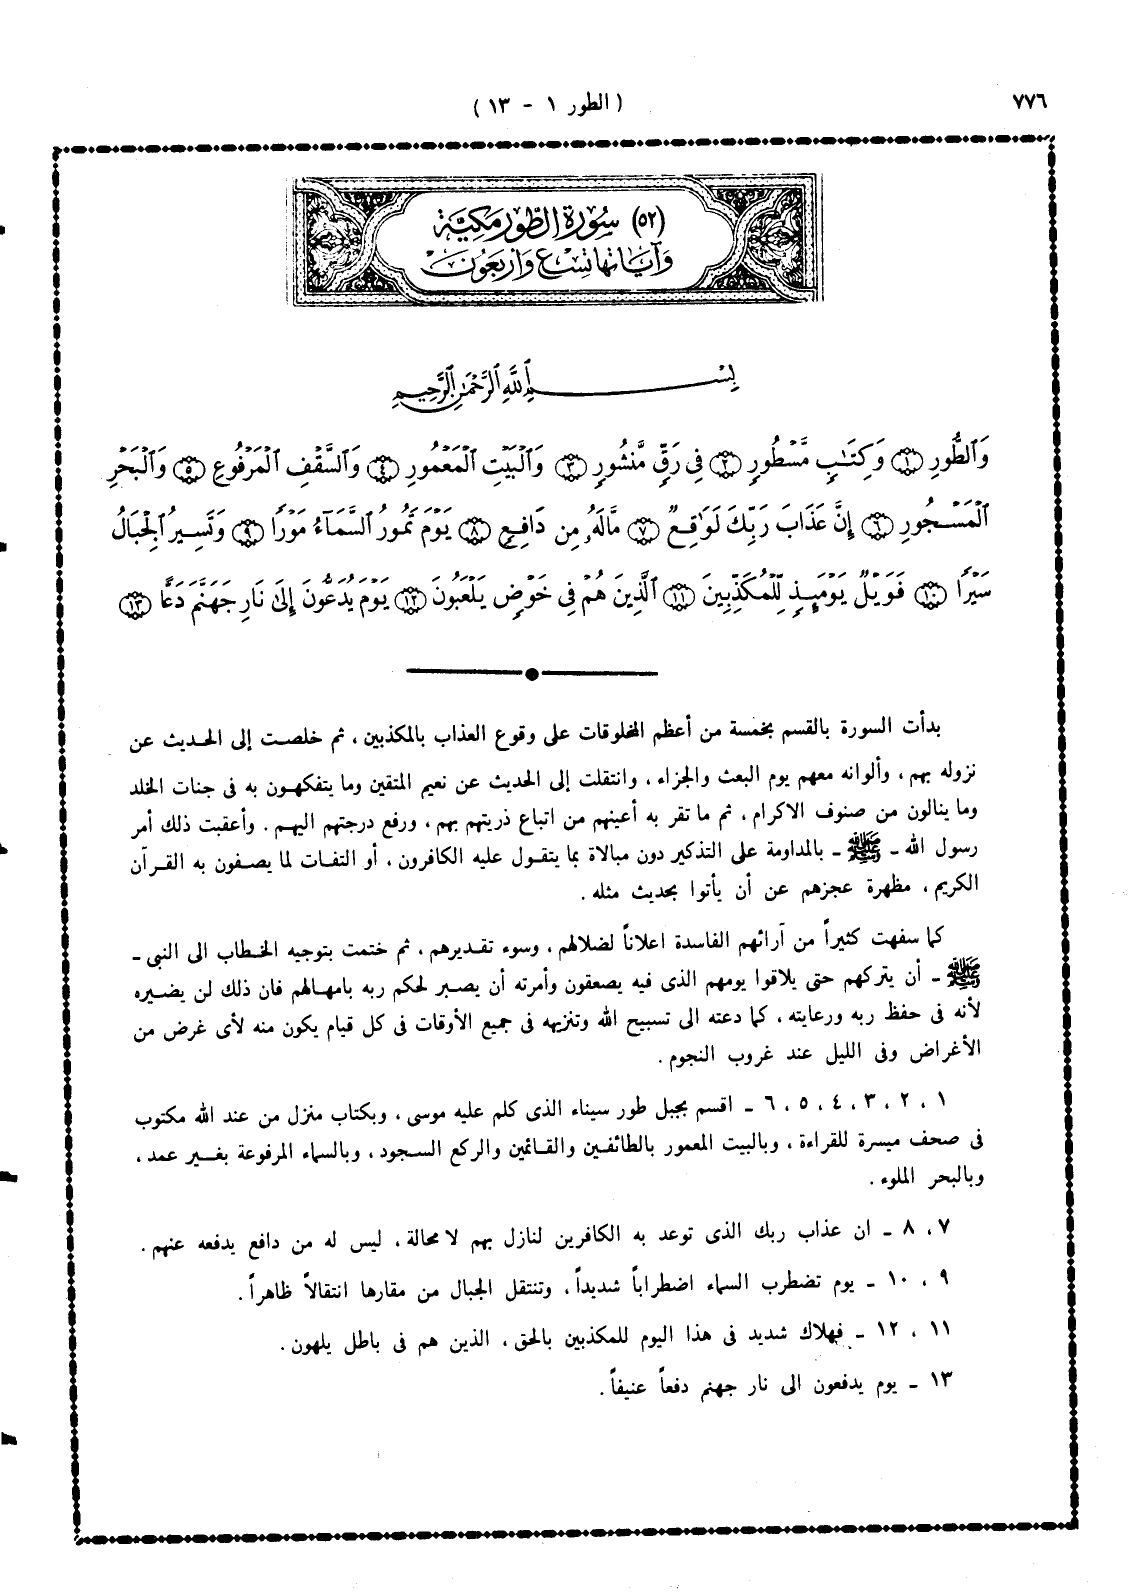 ٧٧٦
( الطور ١ - ١٣ )
(٥٢) سُورَة الطُّور مَكِيَّة
وَآيَاتها تِسْع وَأربَعُون
بِسْمِ ٱللَّهِ ٱلرَّحْمَٰنِ ٱلرَّحِيمِ
وَٱلطُّورِ ١ وَكِتَٰبٍ مَّسْطُورٍ ٢ فِي رَقٍّ مَّنشُورٍ ٣ وَٱلْبَيْتِ ٱلْمَعْمُورِ ٤ وَٱلسَّقْفِ ٱلْمَرْفُوعِ ٥ وَٱلْبَحْرِ
ٱلْمَسْجُورِ ٦ إِنَّ عَذَابَ رَبِّكَ لَوَٰقِعٌ ٧ مَّا لَهُۥ مِن دَافِعٍ ٨ يَوْمَ تَمُورُ ٱلسَّمَآءُ مَوْرًا ٩ وَتَسِيرُ ٱلْجِبَالُ
سَيْرًا ١٠ فَوَيْلٌ يَوْمَئِذٍ لِّلْمُكَذِّبِينَ ١١ ٱلَّذِينَ هُمْ فِي خَوْضٍ يَلْعَبُونَ ١٢ يَوْمَ يُدَعُّونَ إِلَىٰ نَارِ جَهَنَّمَ دَعًّا ١٣
بدأت السورة بالقسم بخمسة من أعظم المخلوقات على وقوع العذاب بالمكذبين ، ثم خلصت إلى الحديث عن
نزوله بهم ، وألوانه معهم يوم البعث والجزاء ، وانتقلت إلى الحديث عن نعيم المتقين وما يتفكهون به فى جنات الخلد
وما ينالون من صنوف الاكرام ، ثم ما تقر به أعينهم من اتباع ذريتهم بهم ، ورفع درجتهم اليهم . وأعقبت ذلك أمر
رسول الله ـ ﷺ ـ بالمداومة على التذكير دون مبالاة بما يتقول عليه الكافرون ، أو التفات لما يصفون به القرآن
الكريم ، مظهرة عجزهم عن أن يأتوا بحديث مثله .
كما سفهت كثيراً من آرائهم الفاسدة اعلاناً لضلالهم ، وسوء تقديرهم ، ثم ختمت بتوجيه الخطاب الى النبى ـ
ﷺ ـ أن يتركهم حتى يلاقوا يومهم الذى فيه يصعقون وأمرته أن يصبر لحكم ربه بامهالهم فان ذلك لن يضيره
لأنه فى حفظ ربه ورعايته ، كما دعته الى تسبيح الله وتنزيهه فى جميع الأوقات فى كل قيام يكون منه لأى غرض من
الأغراض وفى الليل عند غروب النجوم .
١ ، ٢ ، ٣ ، ٤ ، ٥ ، ٦ ـ اقسم بجبل طور سيناء الذى كلم عليه موسى ، وبكتاب منزل من عند الله مكتوب
فى صحف ميسرة للقراءة ، وبالبيت المعمور بالطائفين والقائمين والركع السجود ، وبالسماء المرفوعة بغير عمد ،
وبالبحر الملوء .
٧ ، ٨ ـ ان عذاب ربك الذى توعد به الكافرين لنازل بهم لا محالة ، ليس له من دافع يدفعه عنهم .
٩ ، ١٠ ـ يوم تضطرب السماء اضطراباً شديداً ، وتنتقل الجبال من مقارها انتقالاً ظاهراً .
١١ ، ١٢ ـ فهلاك شديد فى هذا اليوم للمكذبين بالحق ، الذين هم فى باطل يلهون .
١٣ ـ يوم يدفعون الى نار جهنم دفعاً عنيفاً .